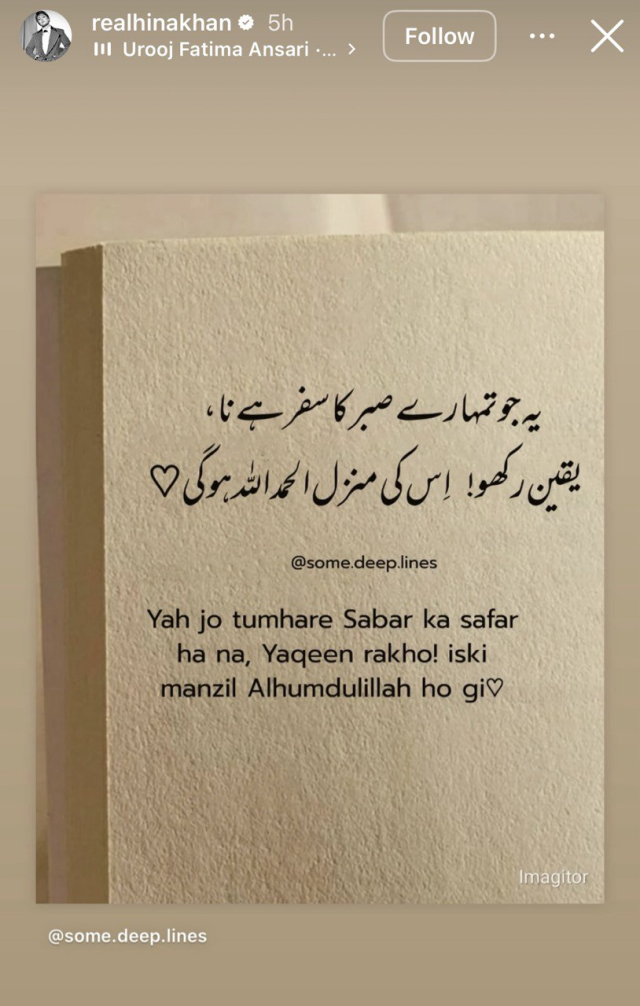 realhinakhan 5h
Urooj Fatima Ansari ·... >
Follow
یہ جو تمہارے صبر کا سفر ہے نا،
یقین رکھو! اِس کی منزل الحمداللہ ہوگی♡
@some.deep.lines
Yah jo tumhare Sabar ka safar
ha na, Yaqeen rakho! iski
manzil Alhumdulillah ho gi♡
Imagitor
@some.deep.lines